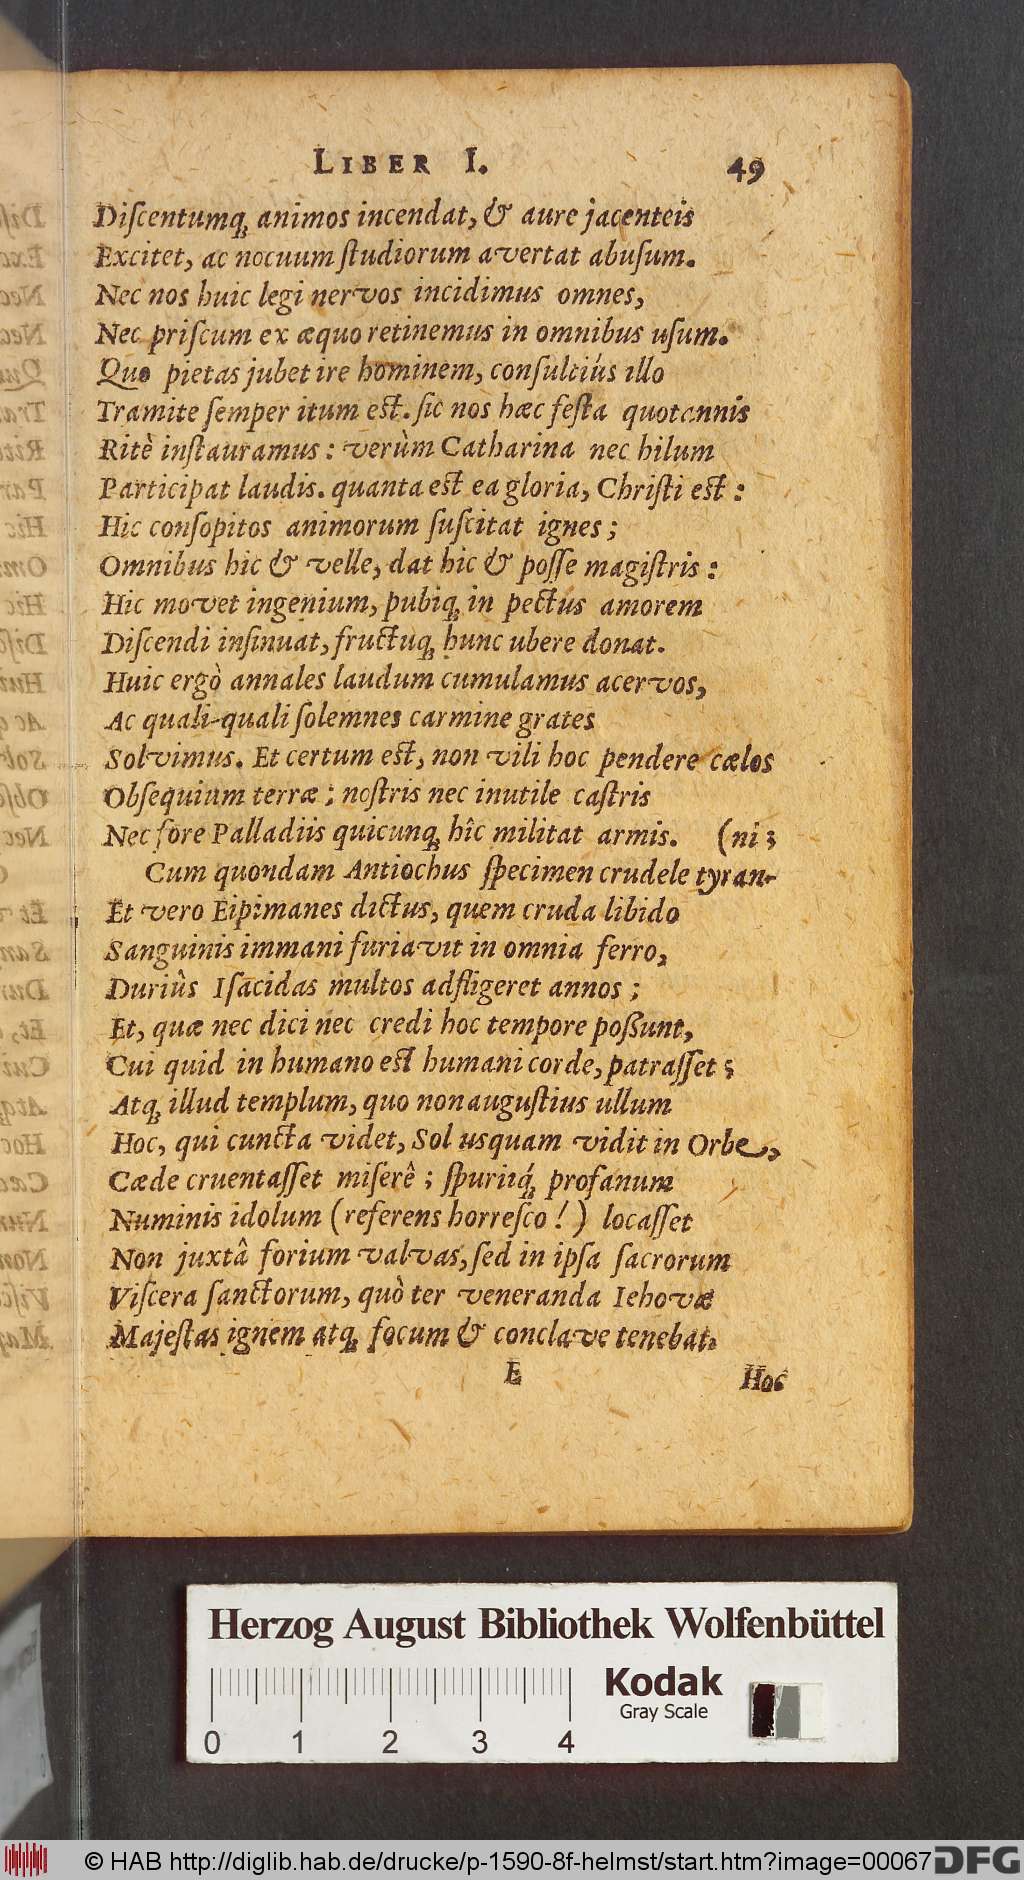 LIBER I. 49
Diſcentumq́; animos incendat, & aure jacenteis
Excitet, ac nocuum ſtudiorum avertat abuſum.
Nec nos huic legi nervos incidimus omnes,
Nec priſcum ex æquo retinemus in omnibus uſum.
Quo pietas jubet ire hominem, conſultiús illo
Tramite ſemper itum eſt. ſic nos hæc feſta quotannis
Ritè inſtauramus: verùm Catharina nec hilum
Participat laudis. quanta eſt ea gloria, Chriſti eſt:
Hic conſopitos animorum ſuſcitat ignes;
Omnibus hic & velle, dat hic & poſſe magiſtris:
Hic movet ingenium, pubiq; in pectus amorem
Diſcendi inſinuat, fructuq; hunc ubere donat.
Huic ergò annales laudum cumulamus acervos,
Ac quali-quali ſolemnes carmine grates
Solvimus. Et certum eſt, non vili hoc pendere cælos
Obſequium terræ; noſtris nec inutile caſtris
Nec fore Palladiis quicunq; hîc militat armis. (ni;
Cum quondam Antiochus ſpecimen crudele tyran-
Et vero Eipimanes dictus, quem cruda libido
Sanguinis immani furiavit in omnia ferro,
Duriûs Iſacidas multos adfligeret annos;
Et, quæ nec dici nec credi hoc tempore poßunt,
Cui quid in humano eſt humani corde, patraſſet;
Atq; illud templum, quo non auguſtius ullum
Hoc, qui cuncta videt, Sol usquam vidit in Orbe,
Cæde cruentaſſet miſerê; ſpuriiq́; profanum
Numinis idolum (referens horreſco!) locaſſet
Non juxtâ forium valvas, ſed in ipſa ſacrorum
Viſcera ſanctorum, quò ter veneranda Iehovæ
Majeſtas ignem atq; focum & conclave tenebat.
E Hoc
Herzog August Bibliothek Wolfenbüttel
Kodak
Gray Scale
0 1 2 3 4
© HAB http://diglib.hab.de/drucke/p-1590-8f-helmst/start.htm?image=00067 DFG